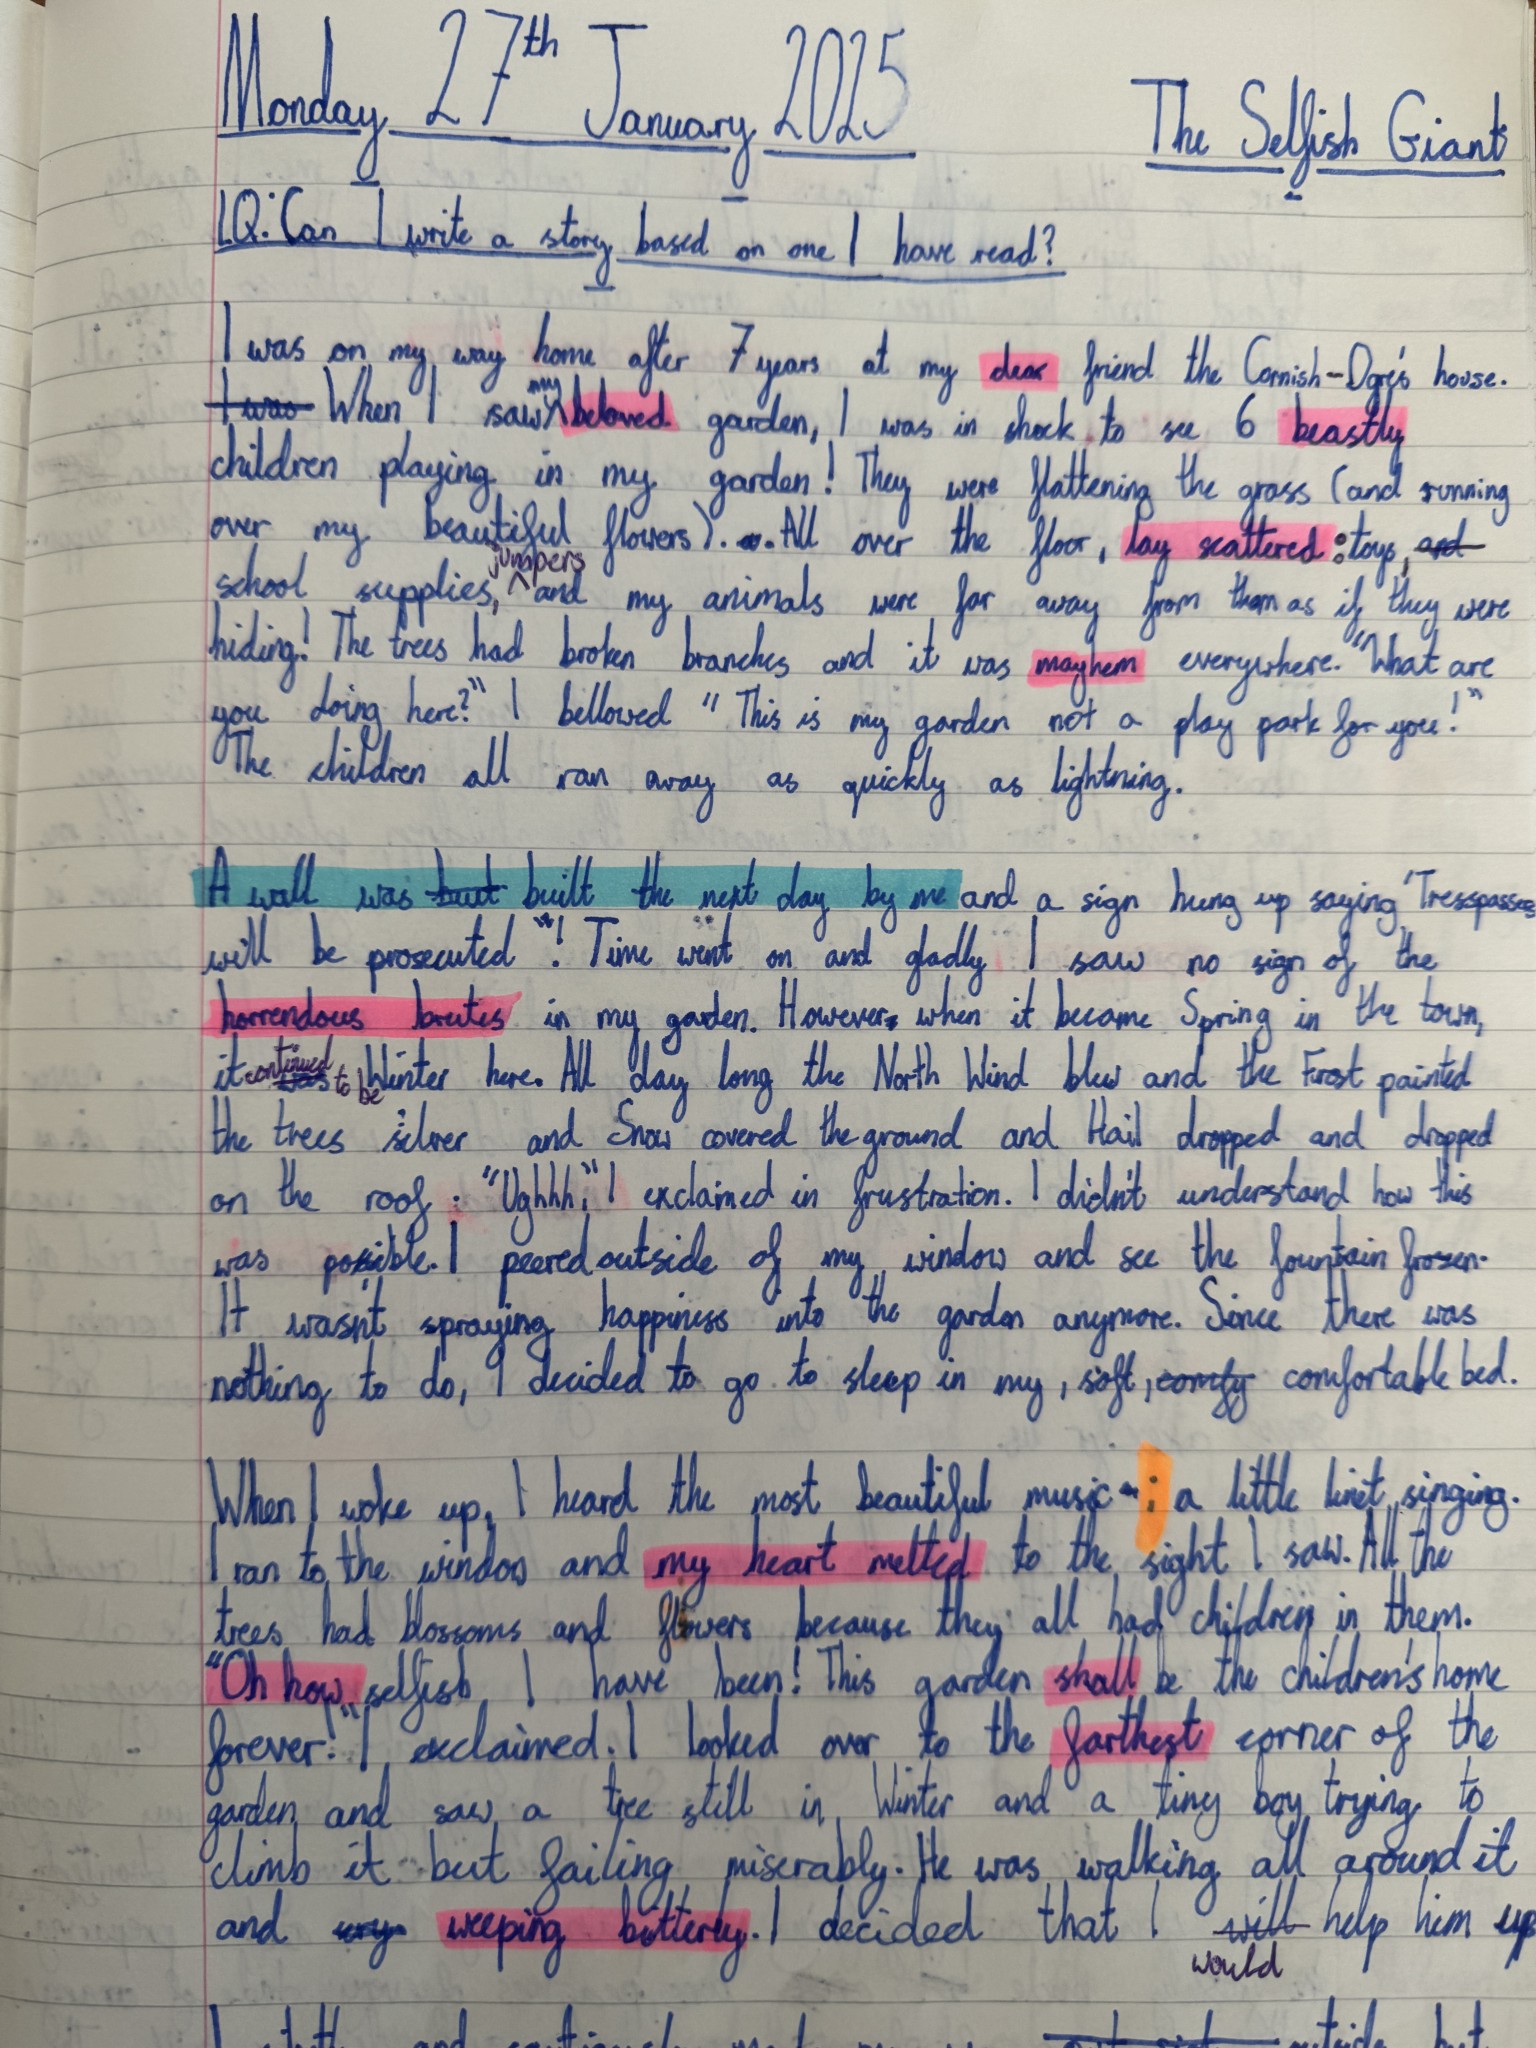 Monday 27th January 2025
The Selfish Giant
LQ: Can I write a story based on one I have read?
I was on my way home after 7 years at my dear friend the Cornish-Ogre's house.
I was When I saw my beloved garden, I was in shock to see 6 beastly
children playing in my garden! They were flattening the grass (and running
over my beautiful flowers). All over the floor, lay scattered: toys, and
school supplies, jumpers and my animals were far away from them as if they were
hiding! The trees had broken branches and it was mayhem everywhere. "What are
you doing here?" I bellowed "This is my garden not a play park for you!"
The children all ran away as quickly as lightning.
A wall was built the next day by me and a sign hung up saying 'Tresspassers
will be prosecuted"! Time went on and gladly I saw no sign of the
horrendous brutes in my garden. However, when it became Spring in the town,
it continued to be Winter here. All day long the North Wind blew and the Frost painted
the trees silver and Snow covered the ground and Hail dropped and dropped
on the roof. "Ughhh," I exclaimed in frustration. I didn't understand how this
was possible. I peered outside of my window and see the fountain frozen.
It wasn't spraying happiness into the garden anymore. Since there was
nothing to do, I decided to go to sleep in my, soft, comfy comfortable bed.
When I woke up, I heard the most beautiful music; a little linet singing.
I ran to the window and my heart melted to the sight I saw. All the
trees had blossoms and flowers because they all had children in them.
"Oh how selfish I have been! This garden shall be the children's home
forever!" I exclaimed. I looked over to the farthest corner of the
garden and saw a tree still in Winter and a tiny boy trying to
climb it but failing miserably. He was walking all around it
and weeping bitterly. I decided that I will would help him up
and cautiously outside but